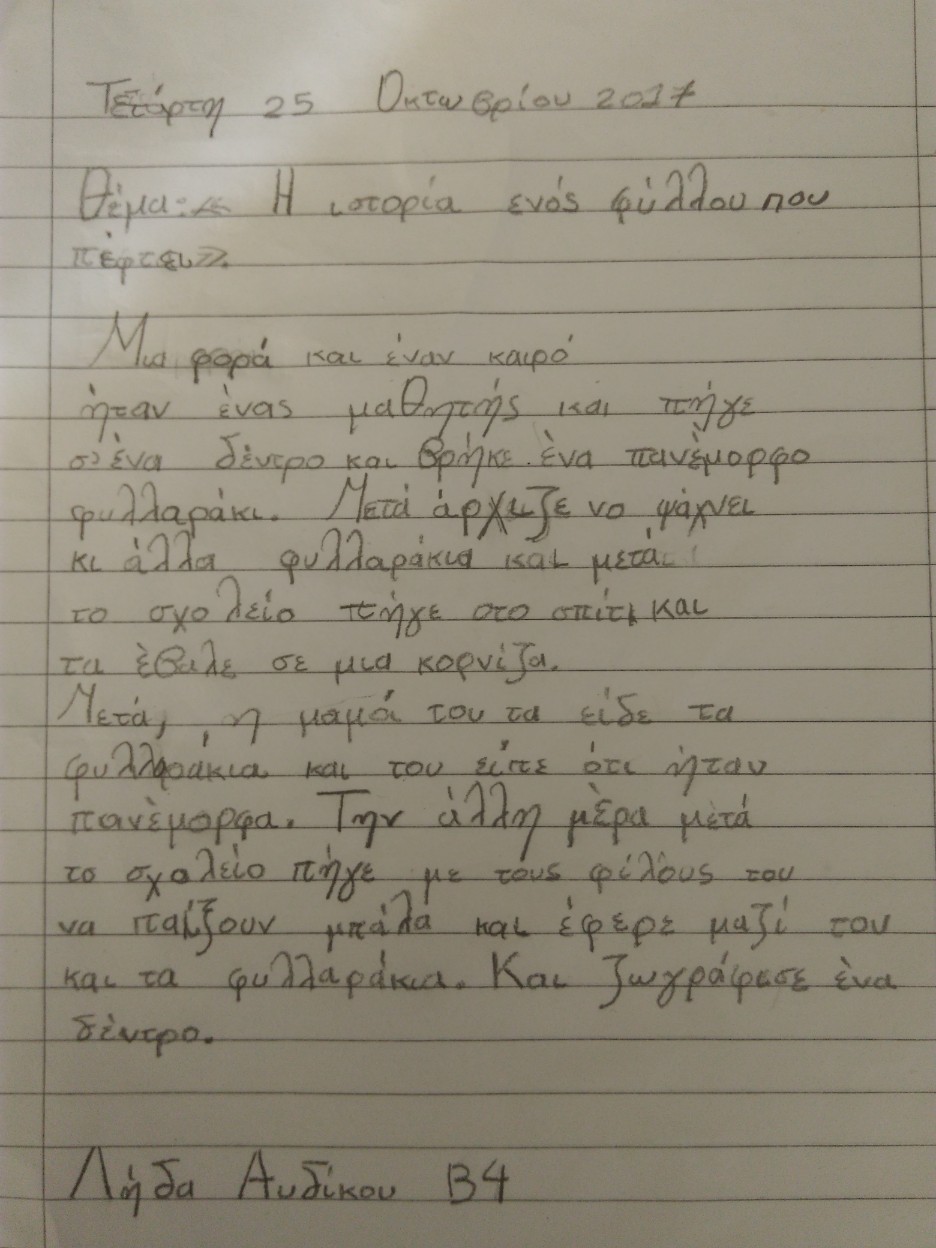 Τετάρτη 25 Οκτωβρίου 2017
Θέμα: « Η ιστορία ενός φύλλου που
πέφτει».
Μια φορά και έναν καιρό
ήταν ένας μαθητής και πήγε
σ' ένα δέντρο και βρήκε ένα πανέμορφο
φυλλαράκι. Μετά άρχιζε να ψάχνει
κι άλλα φυλλαράκια και μετά
το σχολείο πήγε στο σπίτι και
τα έβαλε σε μια κορνίζα.
Μετά, η μαμά του τα είδε τα
φυλλαράκια και του είπε ότι ήταν
πανέμορφα. Την άλλη μέρα μετά
το σχολείο πήγε με τους φίλους του
να παίξουν μπάλα και έφερε μαζί του
και τα φυλλαράκια. Και ζωγράφισε ένα
δέντρο.
Λήδα Αυδίκου Β4